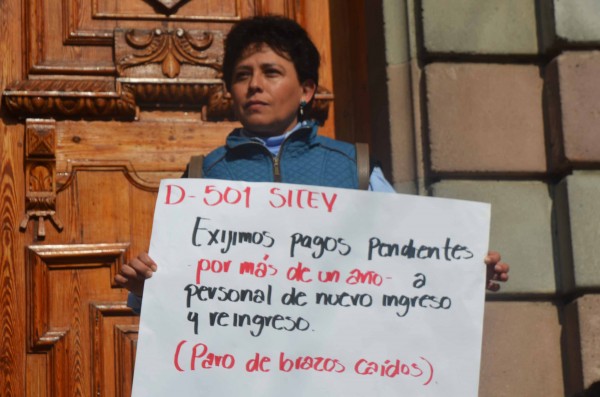 D-501 SITEV
Exijimos pagos pendientes
-por más de un año- a
personal de nuevo ingreso
y reingreso.
(Paro de brazos caídos)